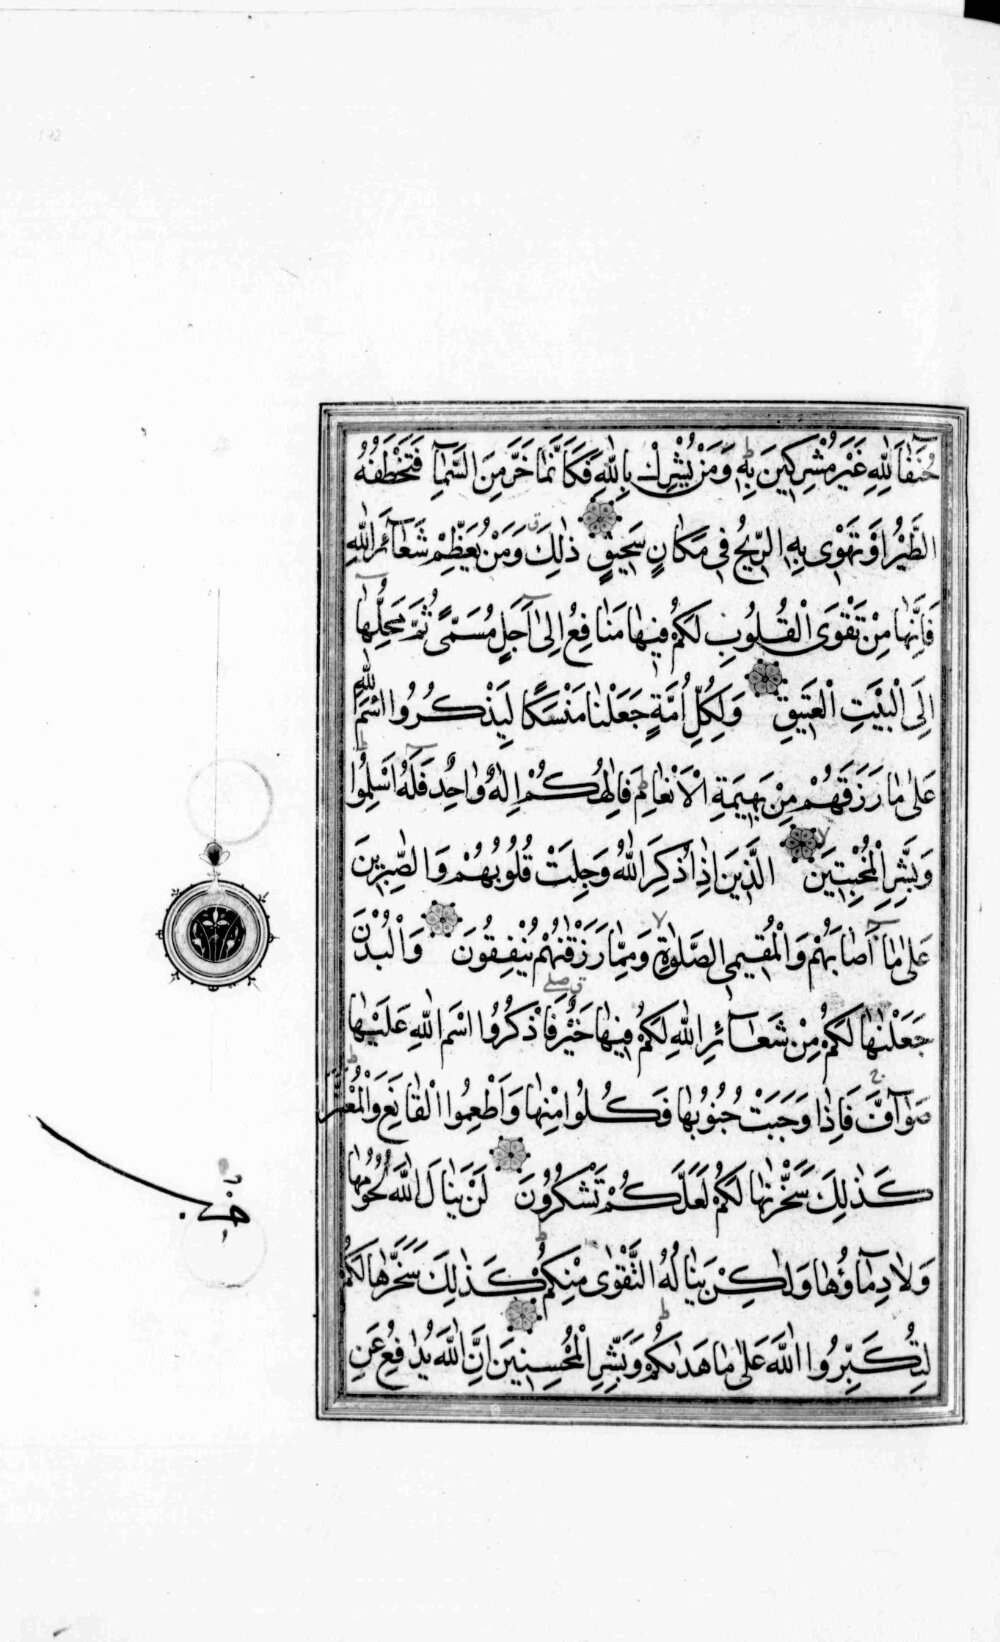 حُنَفَاءَ لِلّٰهِ غَيْرَ مُشْرِكِينَ بِهِ وَمَنْ يُشْرِكْ بِاللّٰهِ فَكَاَنَّمَا خَرَّ مِنَ السَّمَاءِ فَتَخْطَفُهُ
الطَّيْرُ اَوْ تَهْوِى بِهِ الرِّيحُ فِى مَكَانٍ سَحِيقٍ ذٰلِكَ وَمَنْ يُعَظِّمْ شَعَائِرَ اللّٰهِ
فَاِنَّهَا مِنْ تَقْوَى الْقُلُوبِ لَكُمْ فِيهَا مَنَافِعُ اِلٰى اَجَلٍ مُسَمًّى ثُمَّ مَحِلُّهَا
اِلَى الْبَيْتِ الْعَتِيقِ وَلِكُلِّ اُمَّةٍ جَعَلْنَا مَنْسَكًا لِيَذْكُرُوا اسْمَ اللّٰهِ
عَلٰى مَا رَزَقَهُمْ مِنْ بَهِيمَةِ الْاَنْعَامِ فَاِلٰهُكُمْ اِلٰهٌ وَاحِدٌ فَلَهُ اَسْلِمُوا
وَبَشِّرِ الْمُخْبِتِينَ الَّذِينَ اِذَا ذُكِرَ اللّٰهُ وَجِلَتْ قُلُوبُهُمْ وَالصَّابِرِينَ
عَلٰى مَا اَصَابَهُمْ وَالْمُقِيمِى الصَّلٰوةِ وَمِمَّا رَزَقْنٰهُمْ يُنْفِقُونَ وَالْبُدْنَ
جَعَلْنٰهَا لَكُمْ مِنْ شَعَائِرِ اللّٰهِ لَكُمْ فِيهَا خَيْرٌ فَاذْكُرُوا اسْمَ اللّٰهِ عَلَيْهَا
صَوَافَّ فَاِذَا وَجَبَتْ جُنُوبُهَا فَكُلُوا مِنْهَا وَاَطْعِمُوا الْقَانِعَ وَالْمُعْتَرَّ
كَذٰلِكَ سَخَّرْنٰهَا لَكُمْ لَعَلَّكُمْ تَشْكُرُونَ لَنْ يَنَالَ اللّٰهَ لُحُومُهَا
وَلَا دِمَاؤُهَا وَلٰكِنْ يَنَالُهُ التَّقْوٰى مِنْكُمْ كَذٰلِكَ سَخَّرَهَا لَكُمْ
لِتُكَبِّرُوا اللّٰهَ عَلٰى مَا هَدٰىكُمْ وَبَشِّرِ الْمُحْسِنِينَ اِنَّ اللّٰهَ يُدَافِعُ عَنِ
حزب